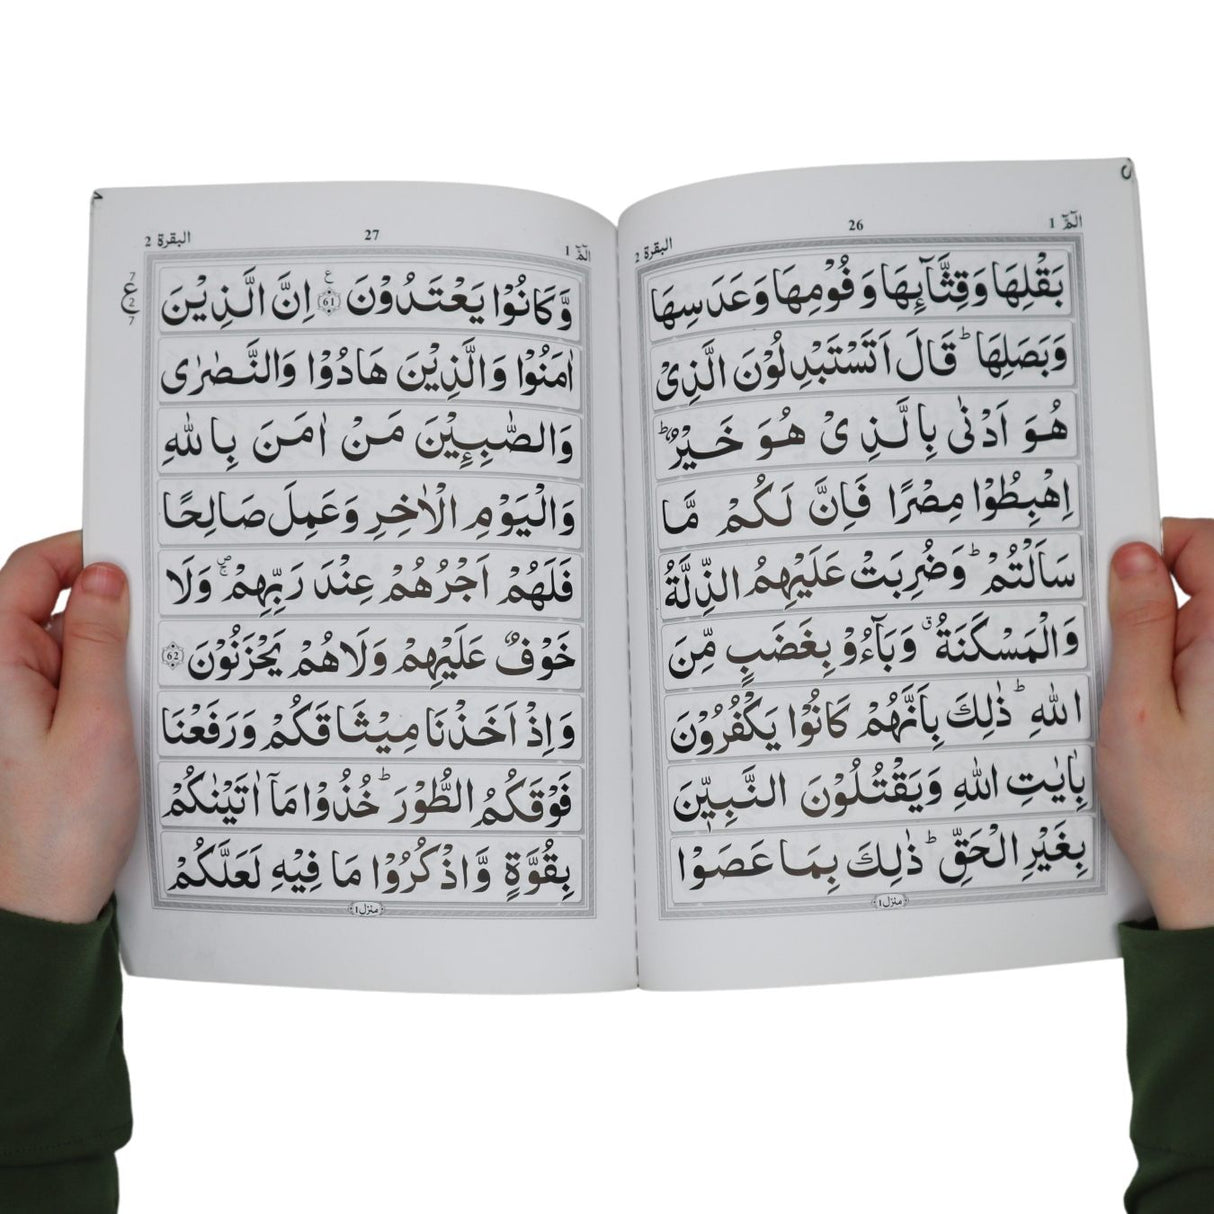 الٓمّٓ 1
26
البقرة 2
بَقْلِهَا وَقِثَّآئِهَا وَفُوْمِهَا وَعَدَسِهَا
وَبَصَلِهَا ؕ قَالَ اَتَسْتَبْدِلُوْنَ الَّذِىْ
هُوَ اَدْنٰى بِالَّذِىْ هُوَ خَيْرٌ ؕ
اِهْبِطُوْا مِصْرًا فَاِنَّ لَكُمْ مَّا
سَاَلْتُمْ ؕ وَضُرِبَتْ عَلَيْهِمُ الذِّلَّةُ
وَالْمَسْكَنَةُ ۗ وَبَآءُوْ بِغَضَبٍ مِّنَ
اللّٰهِ ؕ ذٰلِكَ بِاَنَّهُمْ كَانُوْا يَكْفُرُوْنَ
بِاٰيٰتِ اللّٰهِ وَيَقْتُلُوْنَ النَّبِيّٖنَ
بِغَيْرِ الْحَقِّ ؕ ذٰلِكَ بِمَا عَصَوْا
منزل ١
الٓمّٓ 1
27
البقرة 2
وَّكَانُوْا يَعْتَدُوْنَ 61 ع اِنَّ الَّذِيْنَ
7
ع
2
7
اٰمَنُوْا وَالَّذِيْنَ هَادُوْا وَالنَّصٰرٰى
وَالصّٰبِـِٕيْنَ مَنْ اٰمَنَ بِاللّٰهِ
وَالْيَوْمِ الْاٰخِرِ وَعَمِلَ صَالِحًا
فَلَهُمْ اَجْرُهُمْ عِنْدَ رَبِّهِمْ ۚ وَلَا
خَوْفٌ عَلَيْهِمْ وَلَا هُمْ يَحْزَنُوْنَ 62
وَاِذْ اَخَذْنَا مِيْثَاقَكُمْ وَرَفَعْنَا
فَوْقَكُمُ الطُّوْرَ ؕ خُذُوْا مَآ اٰتَيْنٰكُمْ
بِقُوَّةٍ وَّاذْكُرُوْا مَا فِيْهِ لَعَلَّكُمْ
منزل ١